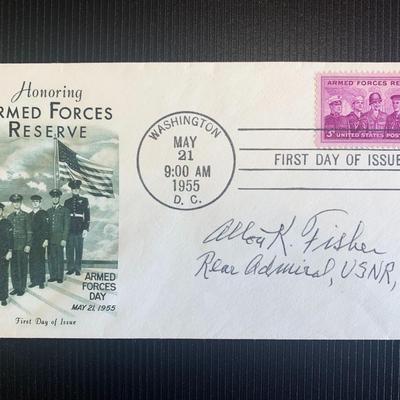 Honoring
ARMED FORCES
RESERVE
ARMED
FORCES
DAY
MAY 21, 1955
First Day of Issue
WASHINGTON
MAY
21
9:00 AM
1955
D. C.
ARMED FORCES RE
3¢ UNITED STATES POST
FIRST DAY OF ISSUE
K. Fisher
Rear Admiral, USNR,